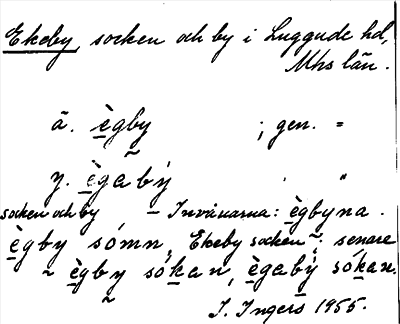 Ekeby, socken och by i Luggude hd,
Mhs län.
ä. ègby ; gen. =
y. ègabý , "
socken och by – Invånarna: ègbyna.
ègby sómn, Ekeby socken ~; senare
~ ègby sókan, ègabý sókan.
I. Ingers 1955.